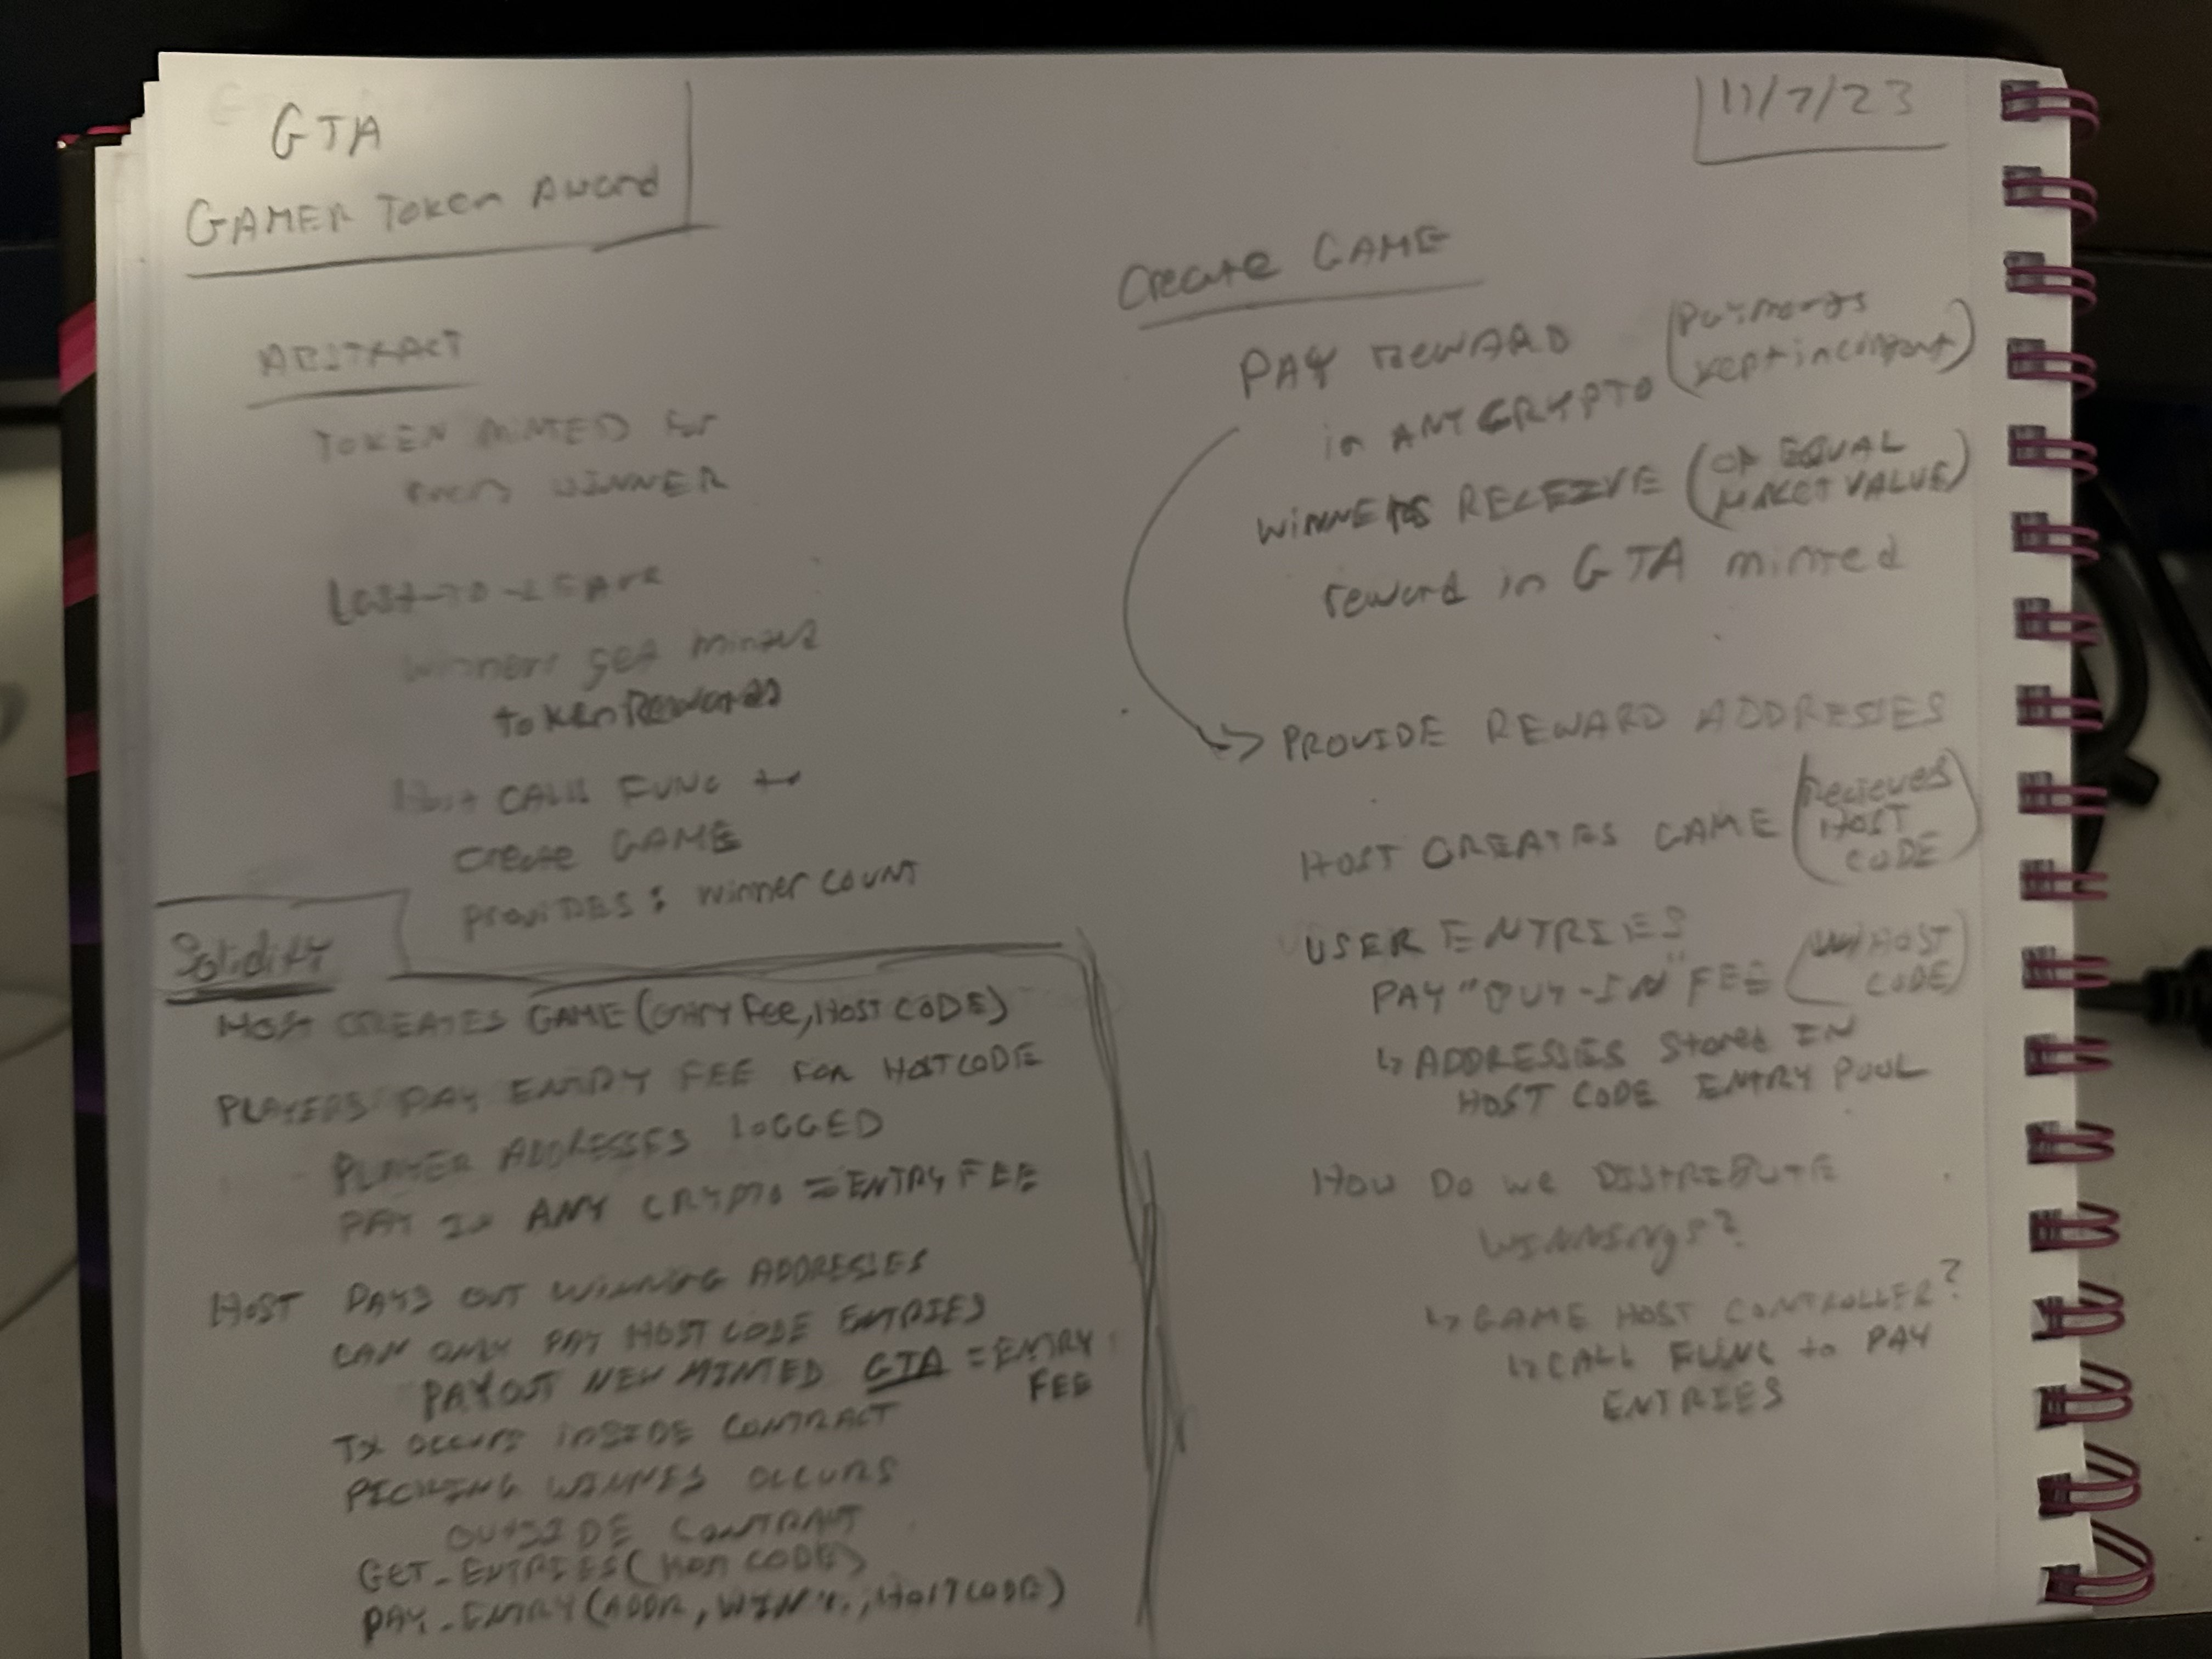 GTA
GAMER Token Award
11/7/23
ABSTRACT
TOKEN MINTED for
every WINNER
Last-TO-LEAVE
winners get minted
token Rewards
Host CALLS FUNC to
create GAME
PROVIDES: winner count
Solidity
HOST CREATES GAME (Entry Fee, HOST CODE)
PLAYERS PAY ENTRY FEE FOR HOSTCODE
PLAYER ADDRESSES LOGGED
PAY In ANY CRYPTO = ENTRY FEE
HOST PAYS OUT WINNING ADDRESSES
CAN ONLY PAY HOST CODE ENTRIES
PAYOUT NEW MINTED GTA = ENTRY
FEE
Tx OCCURS INSIDE CONTRACT
PICKING WINNES OCCURS
OUTSIDE CONTRACT
GET_ENTRIES(HOST CODE)
PAY_ENTRY(ADDR, WIN%, HOSTCODE)
Create GAME
PAY REWARD
(Payments
in ANY CRYPTO
WINNERS RECEIVE (OF EQUAL
MARKET VALUE)
reward in GTA minted
PROVIDE REWARD ADDRESSES
HOST CREATES GAME (Recieves
HOST
CODE)
USER ENTRIES
PAY "BUY-IN" FEE (w/ HOST
CODE)
↳ ADDRESSES Stored IN
HOST CODE ENTRY POOL
How Do we DISTRIBUTE
WINNINGS?
↳ GAME HOST CONTROLLER?
↳ CALL FUNC to PAY
ENTRIES